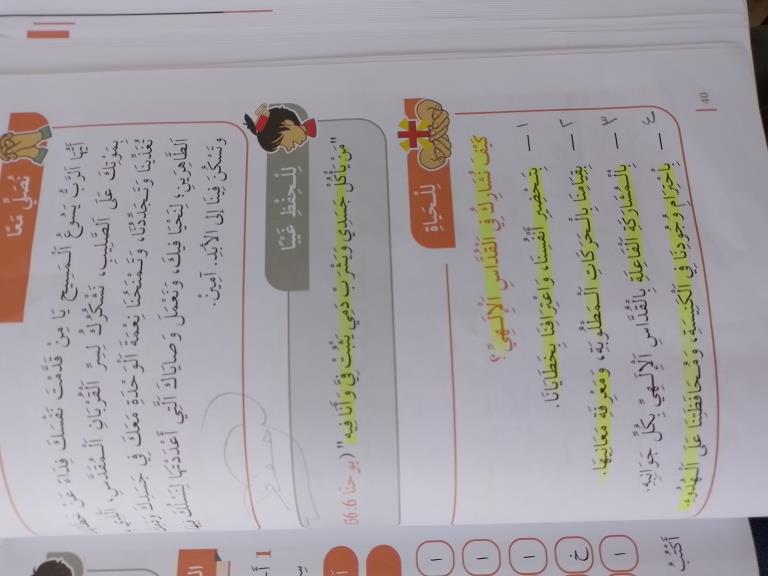 نُصَلِّي مَعًا
أَيُّهَا الرَّبُّ يَسُوعُ الْمَسِيحُ يَا مَنْ قَدَّمْتَ نَفْسَكَ فِدَاءً عَنْ
بِمَوْتِكَ عَلَى الصَّلِيبِ، نَشْكُرُكَ لِسِرِّ الْقُرْبَانِ الْمُقَدَّسِ، الَّذِي
تُغَذِّينَا وَتُجَدِّدُنَا، وَتَمْنَحُنَا نِعْمَةَ الْوَحْدَةِ مَعَكَ فِي جَسَدِكَ
الطَّاهِرَيْنِ؛ لِنَحْيَا فِيكَ، وَنَعْمَلَ وَصَايَاكَ الَّتِي أَعْدَدْتَهَا
وَتَسْكُنَ فِينَا إِلَى الْأَبَدِ. آمِينْ.
لِلْحِفْظِ غَيْبًا
"مَنْ يَأْكُلْ جَسَدِي وَيَشْرَبْ دَمِي يَثْبُتْ فِيَّ وَأَنَا فِيهِ" (يوحنا 6:56
لِلْحَيَاةِ
كَيْفَ نُشَارِكُ فِي الْقُدَّاسِ الْإِلَهِيِّ؟
١ – بِتَحْضِيرِ أَنْفُسِنَا، وَاعْتِرَافِنَا بِخَطَايَانَا.
٢ – بِقِيَامِنَا بِالْحَرَكَاتِ الْمَطْلُوبَةِ، وَمَعْرِفَةِ مَعَانِيهَا.
٣ – بِالْمُشَارَكَةِ الْفَاعِلَةِ بِالْقُدَّاسِ الْإِلَهِيِّ بِكُلِّ جَوَانِبِهِ.
٤ – بِاحْتِرَامِ وُجُودِنَا فِي الْكَنِيسَةِ، وَمُحَافَظَتِنَا عَلَى الْهُدُوءِ.
40
1
ا
ا
ا
خ
ا
أَكْتُبُ